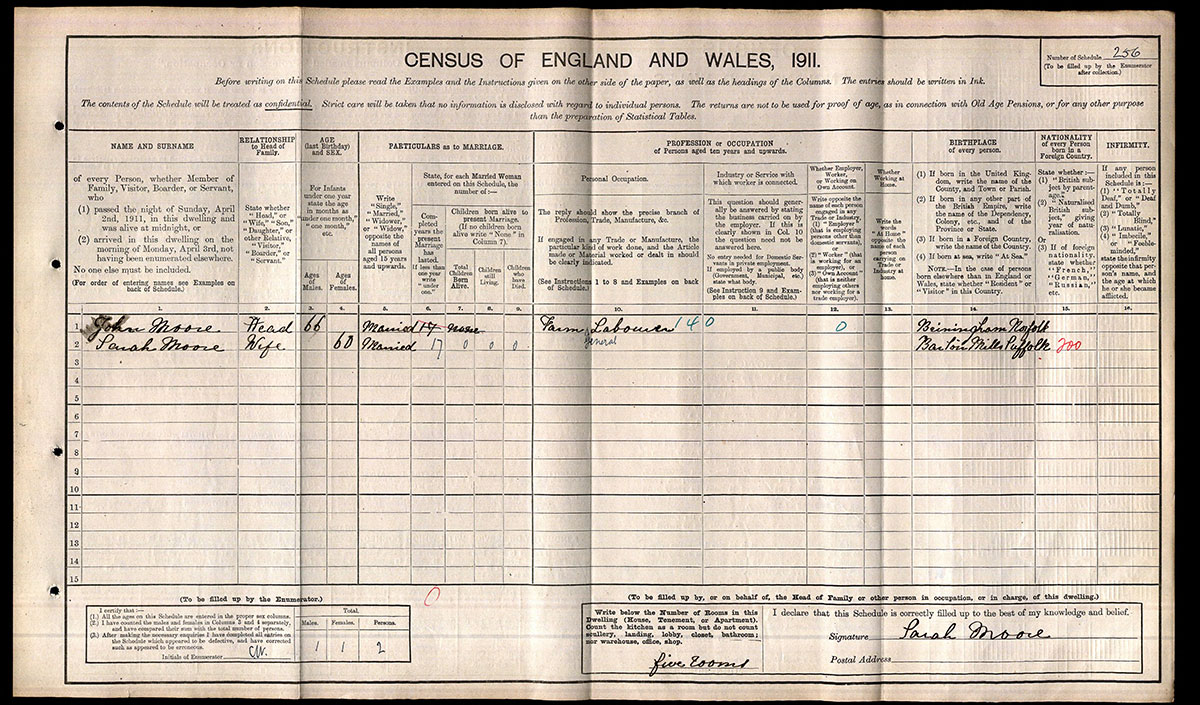 CENSUS OF ENGLAND AND WALES, 1911.
Number of Schedule 256
(To be filled up by the Enumerator
after collection.)
Before writing on this Schedule please read the Examples and the Instructions given on the other side of the paper, as well as the headings of the Columns. The entries should be written in Ink.
The contents of the Schedule will be treated as confidential. Strict care will be taken that no information is disclosed with regard to individual persons. The returns are not to be used for proof of age, as in connection with Old Age Pensions, or for any other purpose
than the preparation of Statistical Tables.
NAME AND SURNAME
of every Person, whether Member of
Family, Visitor, Boarder, or Servant,
who
(1) passed the night of Sunday, April
2nd, 1911, in this dwelling and
was alive at midnight, or
(2) arrived in this dwelling on the
morning of Monday, April 3rd, not
having been enumerated elsewhere.
No one else must be included.
(For order of entering names see Examples on
back of Schedule.)
1.
RELATIONSHIP
to Head of
Family.
State whether
"Head," or
"Wife," "Son,"
"Daughter," or
other Relative,
"Visitor,"
"Boarder," or
"Servant."
2.
AGE
(last Birthday)
and SEX.
For Infants
under one year
state the age
in months as
"under one month,"
"one month,"
etc.
Ages
of
Males.
Ages
of
Females.
3.
4.
PARTICULARS as to MARRIAGE.
Write
"Single,"
"Married,"
"Widower,"
or "Widow,"
opposite the
names of
all persons
aged 15 years
and upwards.
5.
State, for each Married Woman
entered on this Schedule, the
number of :—
Com-
pleted
years the
present
Marriage
has
lasted.
If less than
one year
write
"under
one."
6.
Children born alive to
present Marriage.
(If no children born
alive write "None" in
Column 7).
Total
Children
Born
Alive.
7.
Children
still
Living.
8.
Children
who
have
Died.
9.
PROFESSION or OCCUPATION
of Persons aged ten years and upwards.
Personal Occupation.
The reply should show the precise branch of
Profession, Trade, Manufacture, &c.
If engaged in any Trade or Manufacture, the
particular kind of work done, and the Article
made or Material worked or dealt in should
be clearly indicated.
(See Instructions 1 to 8 and Examples on back
of Schedule.)
10.
Industry or Service with
which worker is connected.
This question should gener-
ally be answered by stating
the business carried on by
the employer. If this is
clearly shown in Col. 10
the question need not be
answered here.
No entry needed for Domestic Ser-
vants in private employment.
If employed by a public body
(Government, Municipal, etc.)
state what body.
(See Instruction 9 and Exam-
ples on back of Schedule.)
11.
Whether Employer,
Worker,
or Working on
Own Account.
Write opposite the
name of each person
engaged in any
Trade or Industry,
(1) "Employer"
(that is employing
persons other than
domestic servants),
or
(2) "Worker" (that
is working for an
employer), or
(3) "Own Account"
(that is neither
employing others
nor working for a
trade employer).
12.
Whether
Working at
Home.
Write the
words
"At Home"
opposite the
name of each
person
carrying on
Trade or
Industry at
home.
13.
BIRTHPLACE
of every person.
(1) If born in the United King-
dom, write the name of the
County, and Town or Parish.
(2) If born in any other part of
the British Empire, write
the name of the Dependency,
Colony, etc., and of the
Province or State.
(3) If born in a Foreign Country,
write the name of the Country.
(4) If born at sea, write "At Sea."
NOTE.—In the case of persons
born elsewhere than in England or
Wales, state whether "Resident" or
"Visitor" in this Country.
14.
NATIONALITY
of every Person
born in a
Foreign Country.
State whether :—
(1) "British sub-
ject by parent-
age."
(2) "Naturalised
British sub-
ject," giving
year of natu-
ralisation.
Or
(3) If of foreign
nationality,
state whether
"French,"
"German,"
"Russian,"
etc.
15.
INFIRMITY.
If any person
included in this
Schedule is :—
(1) "Totally
Deaf," or "Deaf
and Dumb,"
(2) "Totally
Blind,"
(3) "Lunatic,"
(4) "Imbecile,"
or "Feeble-
minded,"
state the infirmity
opposite that per-
son's name, and
the age at which
he or she became
afflicted.
16.
1 John Moore Head 66 Married 17 none Farm Labourer 140 0 Briningham Norfolk
general
2 Sarah Moore Wife 60 Married 17 0 0 0 Barton Mills Suffolk 200
3
4
5
6
7
8
9
10
11
12
13
14
15
0
(To be filled up by the Enumerator.)
I certify that :—
(1.) All the ages on this Schedule are entered in the proper sex columns.
(2.) I have counted the males and females in Columns 3 and 4 separately,
and have compared their sum with the total number of persons.
(3.) After making the necessary enquiries I have completed all entries on
the Schedule which appeared to be defective, and have corrected
such as appeared to be erroneous.
Initials of Enumerator
Total.
Males. Females. Persons.
1 1 2
(To be filled up by, or on behalf of, the Head of Family or other person in occupation, or in charge, of this dwelling.)
Write below the Number of Rooms in this
Dwelling (House, Tenement, or Apartment).
Count the kitchen as a room but do not count
scullery, landing, lobby, closet, bathroom;
nor warehouse, office, shop.
five rooms
I declare that this Schedule is correctly filled up to the best of my knowledge and belief.
Signature Sarah Moore
Postal Address